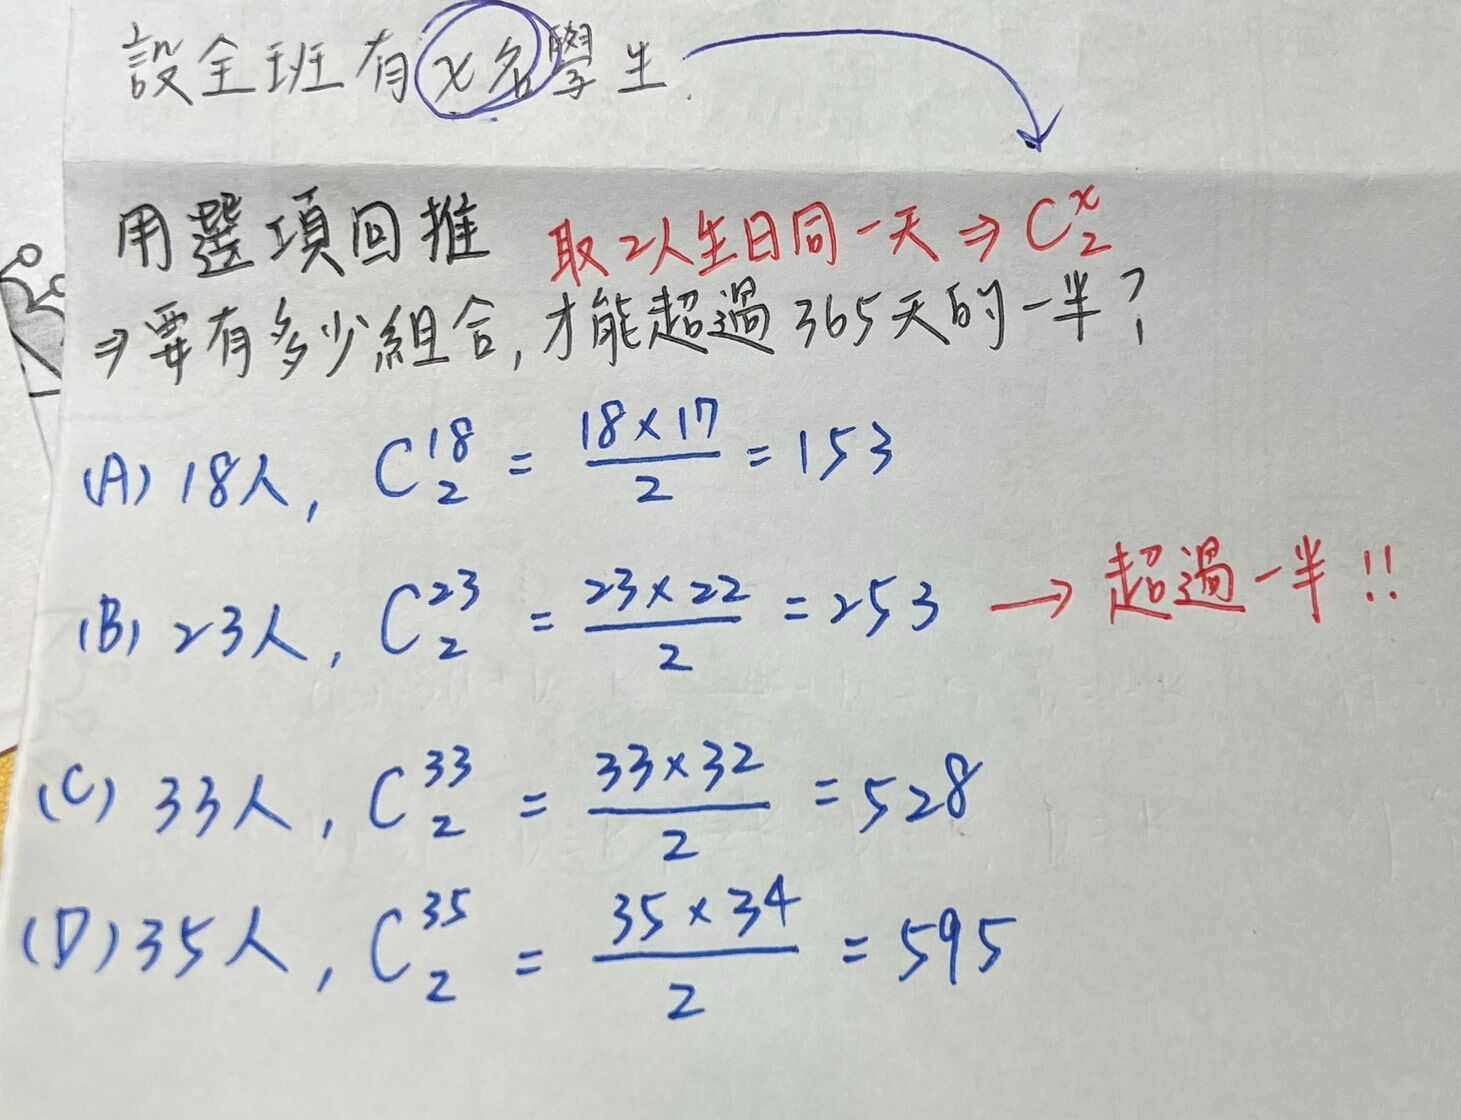 設全班有x名學生.
用選項回推 取2人生日同一天⇒C₂ˣ
⇒要有多少組合,才能超過365天的一半?
(A) 18人, C₂¹⁸ = (18×17)/2 = 153
(B) 23人, C₂²³ = (23×22)/2 = 253 → 超過一半!!
(C) 33人, C₂³³ = (33×32)/2 = 528
(D) 35人, C₂³⁵ = (35×34)/2 = 595